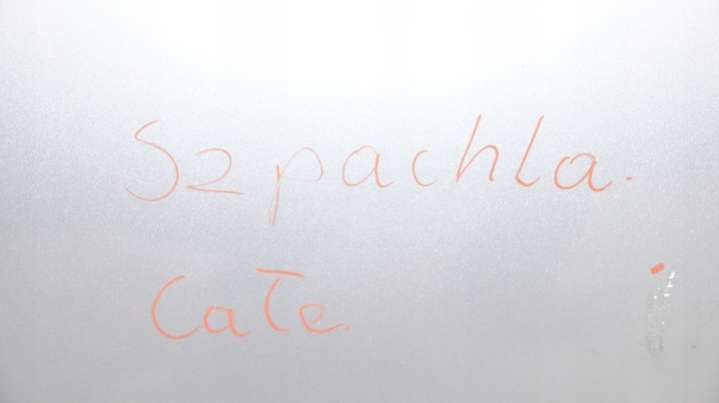 Szpachla.
Całe.